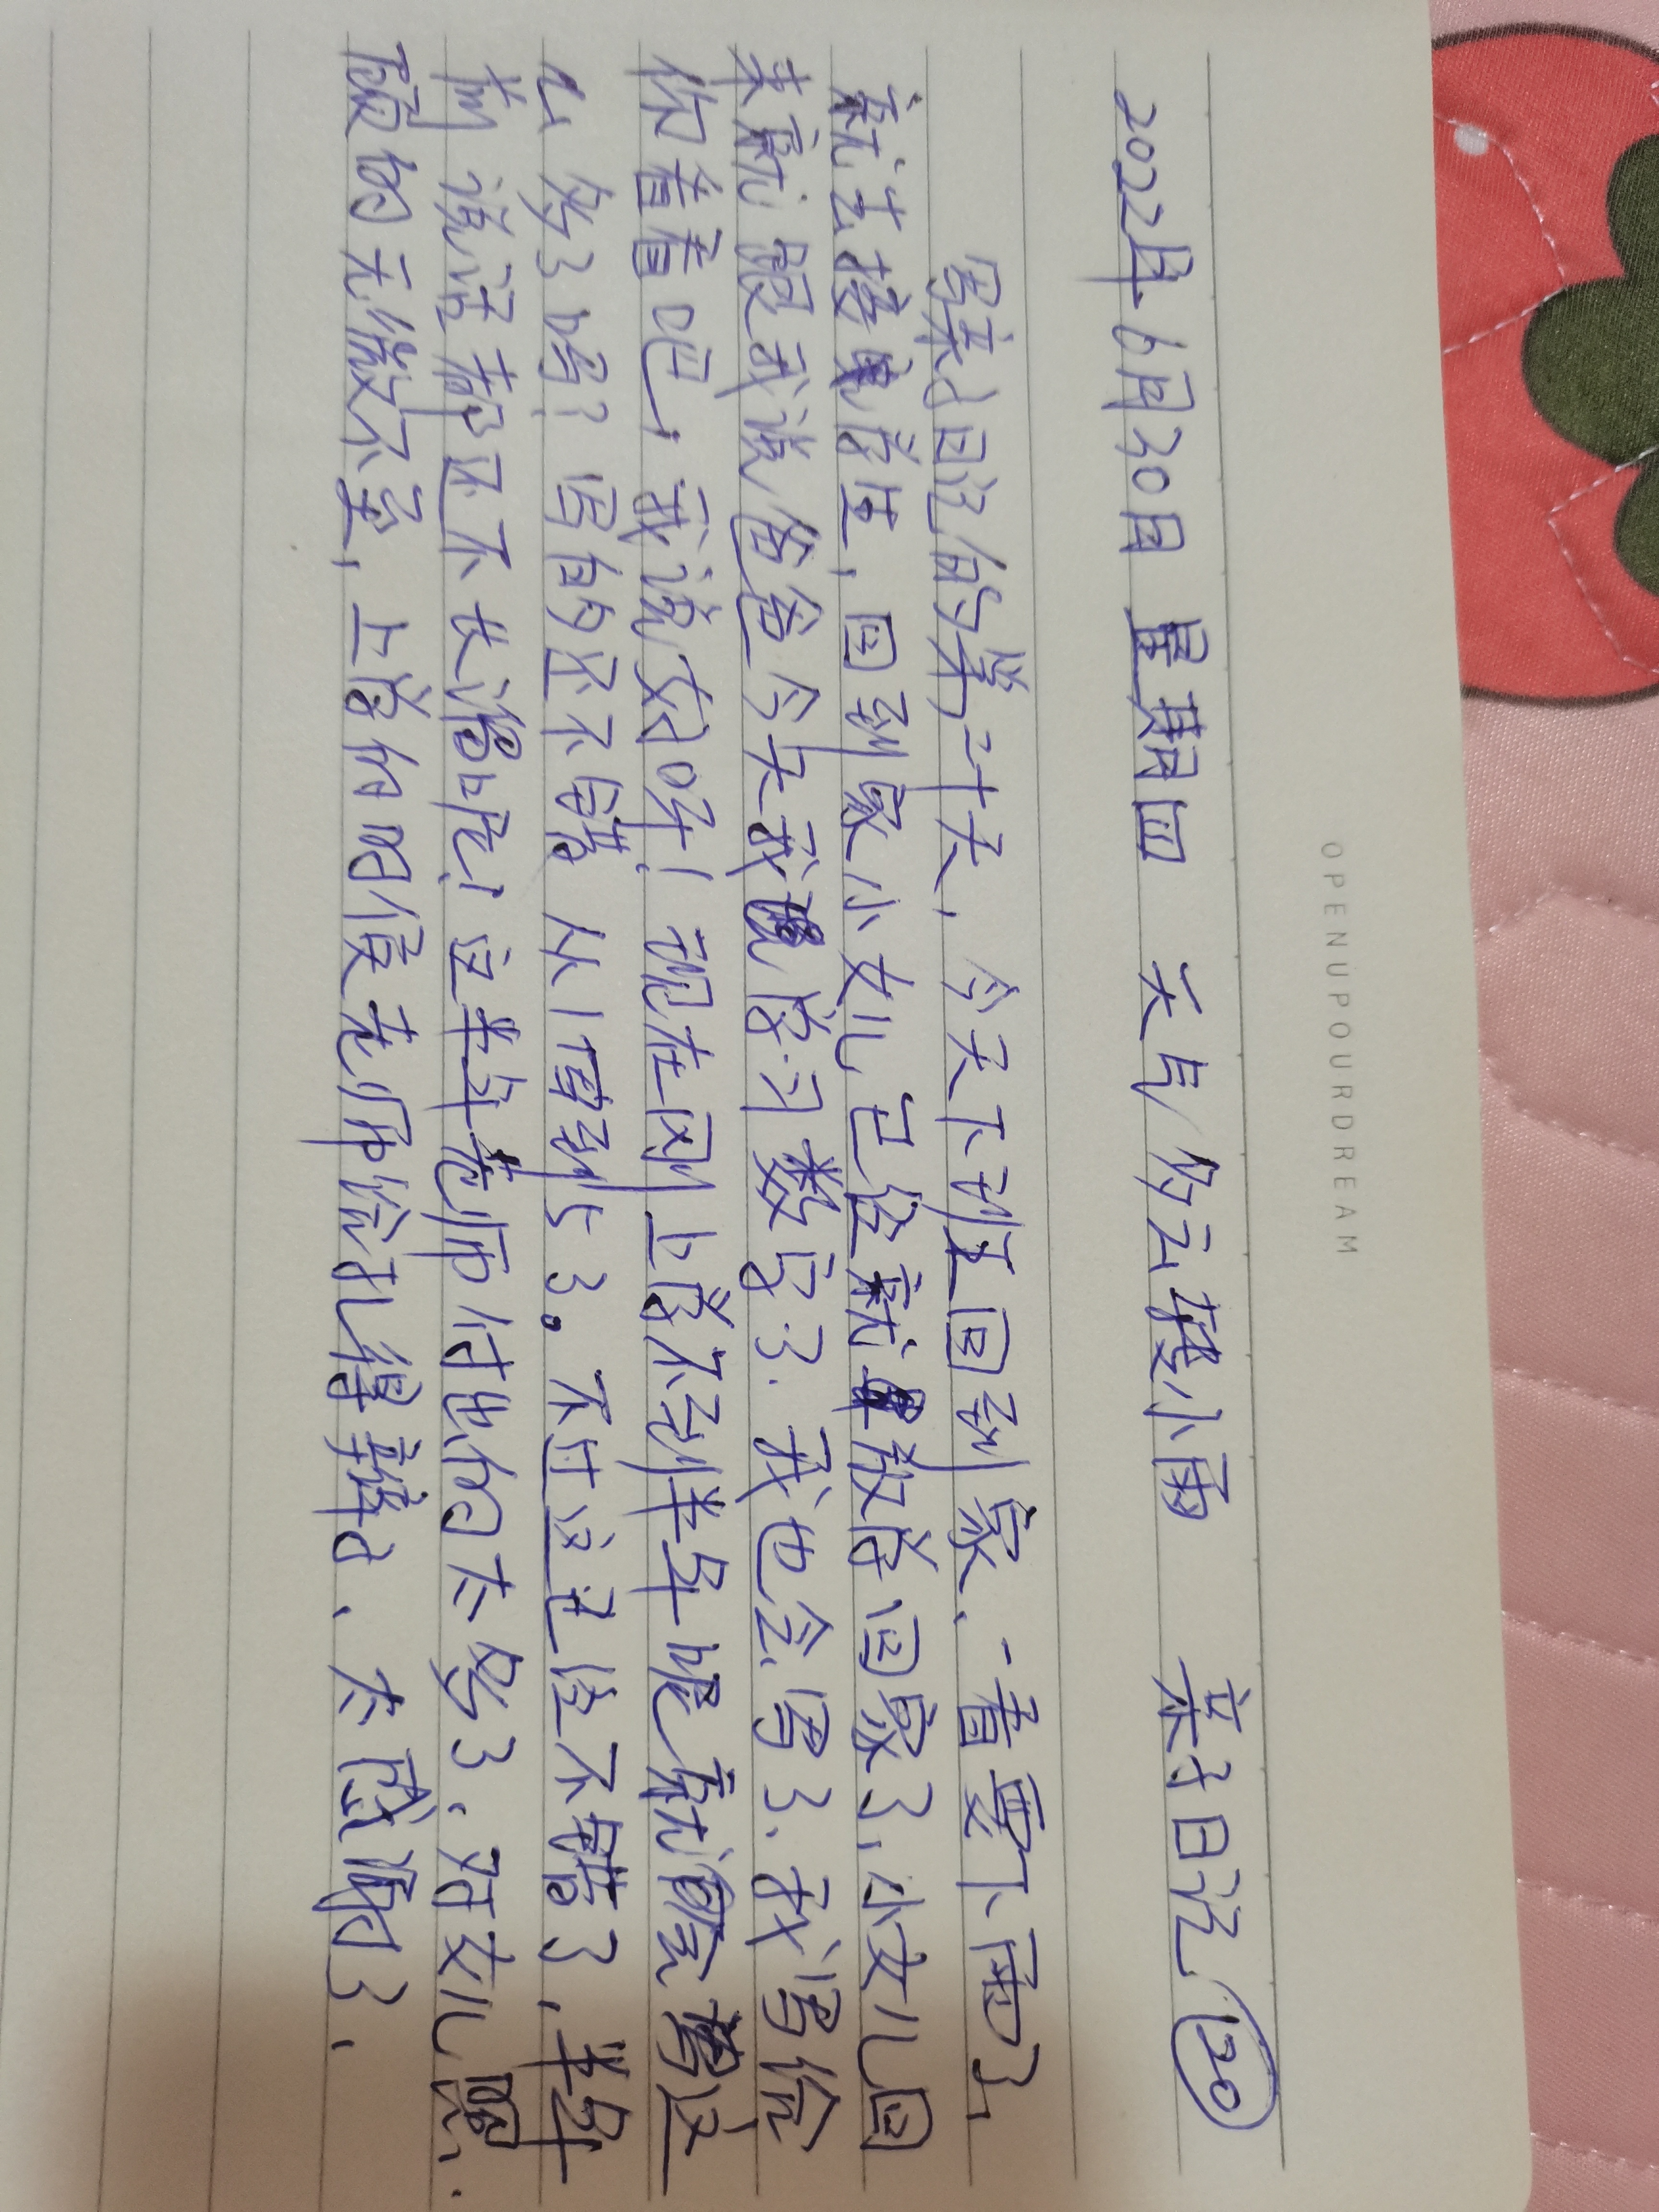 OPENUPOURDREAM
2022年6月30日 星期四 天气/多云转小雨 亲子日记(20)
写亲子日记的第二十天,今天下班回到家、一看要下雨了,
就去接学生,回到家小女儿已经就放学回家了,小女儿回
来就跟我说爸爸今天我学习数字了.我也会写了、我写给
你看看吧,我说好呀!现在刚上学不到半年呢就会写这
么多了哈!写的还不错 从1写到53。不过这已经不错了,半年
前说话都还不太清呢!这半年老师付出的太多了、对女儿照.
顾的无微不至,上学的时候老师给扎得辫子、太感谢了.